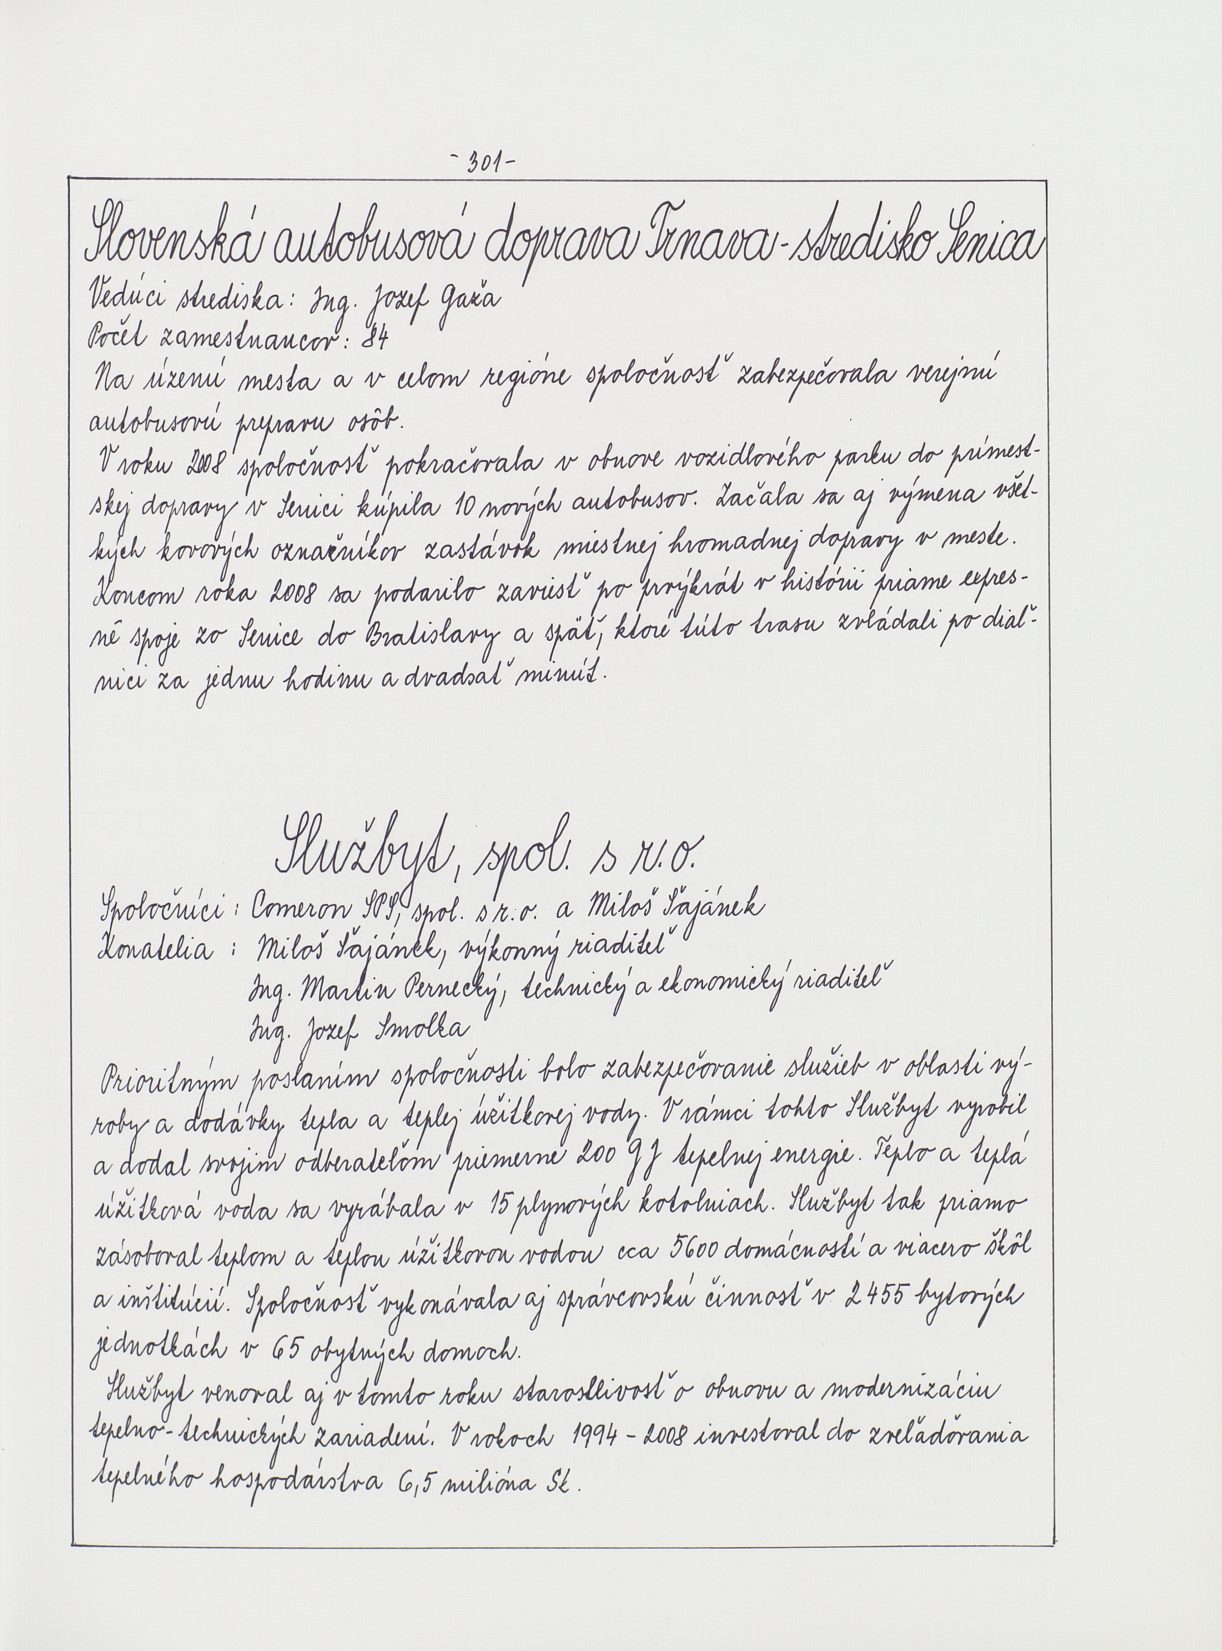 - 301 -
Slovenská autobusová doprava Trnava - stredisko Senica
Vedúci strediska: Ing. Jozef Gaža
Počet zamestnancov: 84
Na území mesta a v celom regióne spoločnosť zabezpečovala verejnú
autobusovú prepravu osôb.
V roku 2008 spoločnosť pokračovala v obnove vozidlového parku do prímest-
skej dopravy v Senici kúpila 10 nových autobusov. Začala sa aj výmena všet-
kých kovových označníkov zastávok miestnej hromadnej dopravy v meste.
Koncom roka 2008 sa podarilo zaviesť po prvýkrát v histórii priame expres-
né spoje zo Senice do Bratislavy a späť, ktoré túto trasu zvládali po diaľ-
nici za jednu hodinu a dvadsať minút.
Službyt, spol. s r.o.
Spoločníci: Comeron SPS, spol. s r.o. a Miloš Šajánek
Konatelia : Miloš Šajánek, výkonný riaditeľ
Ing. Martin Pernecký, technický a ekonomický riaditeľ
Ing. Jozef Smolka
Prioritným poslaním spoločnosti bolo zabezpečovanie služieb v oblasti vý-
roby a dodávky tepla a teplej úžitkovej vody. V rámci tohto Službyt vyrobil
a dodal svojim odberateľom priemerne 200 GJ tepelnej energie. Teplo a teplá
úžitková voda sa vyrábala v 15 plynových kotolniach. Službyt tak priamo
zásoboval teplom a teplou úžitkovou vodou cca 5600 domácností a viacero škôl
a inštitúcií. Spoločnosť vykonávala aj správcovskú činnosť v 2455 bytových
jednotkách v 65 obytných domoch.
Službyt venoval aj v tomto roku starostlivosť o obnovu a modernizáciu
tepelno-technických zariadení. V rokoch 1994 - 2008 investoval do zveľaďovania
tepelného hospodárstva 6,5 milióna Sk.